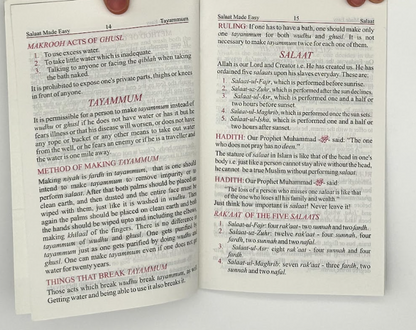 Salaat Made Easy 14 Tayammum
MAKROOH ACTS OF GHUSL
1. To use excess water.
2. To take little water which is inadequate.
3. Talking to anyone or facing the qiblah when taking
the bath naked.
It is prohibited to expose one's private parts, thighs or knees
in front of anyone.
TAYAMMUM
It is permissible for a person to make tayammum instead of
wudhu or ghusl if he does not have water or has it but he
fears illness or that his disease will worsen, or does not have
any rope or bucket or any other means to take out water
from the well, or he fears an enemy or if he is a traveller and
the water is one mile away.
METHOD OF MAKING TAYAMMUM
Making niyyah is fardh in tayammum, that is one should
intend to make tayammum to remove impurity or to
perform salaat. After that both palms should be placed on
clean earth, and then dusted and the entire face must be
wiped with them, just like it is washed in wudhu. Then
again the palms should be placed on clean earth and both
the hands should be wiped upto and including the elbows
making khilaal of the fingers. There is no difference in
tayammum of wudhu and ghusl. One gets purified by
tayammum just as one gets purified by doing wudhu and
ghusl. One can make tayammum even if one does not get
water for twenty years.
THINGS THAT BREAK TAYAMMUM
Those acts which break wudhu break tayammum, as well.
Getting water and being able to use it also breaks it.
Salaat Made Easy 15 Salaat
RULING: If one has to have a bath, one should make only
one tayammum for both wudhu and ghusl. It is not
necessary to make tayammum twice for each one of them.
SALAAT
Allah is our Lord and Creator i.e. He has created us. He has
ordained five salaats upon his slaves everyday. These are:
1. Salaat-ul-Fajr, which is performed before sunrise.
2. Salaat-uz-Zuhr, which is performed after the sun declines.
3. Salaat-ul-Asr, which is performed one and a half or
two hours before sunset.
4. Salaat-ul-Maghrib, which is performed once the sun sets.
5. Salaat-ul-Isha, which is performed one and a half or
two hours after sunset.
HADITH: Our Prophet Muhammad ﷺ said: "The one
who does not pray has no deen."
The stature of salaat in Islam is like that of the head in one's
body i.e. just like a person cannot stay alive without the head,
he cannot be a true Muslim without performing salaat.
HADITH: Our Prophet Muhammad ﷺ said:
"The loss of a person who misses one salaat is like that
of the one who loses all his family and wealth."
Just think how important is salaat! Never leave it!
RAK'AAT OF THE FIVE SALAATS
1. Salaat-ul-Fajr: four rak'aat - two sunnah and two fardh.
2. Salaat-uz-Zuhr: twelve rak'aat - four sunnah, four
fardh, two sunnah and two nafal.
3. Salaat-ul-Asr: eight rak'aat - four sunnah and four
fardh.
4. Salaat-ul-Maghrib: seven rak'aat - three fardh, two
sunnah and two nafal.